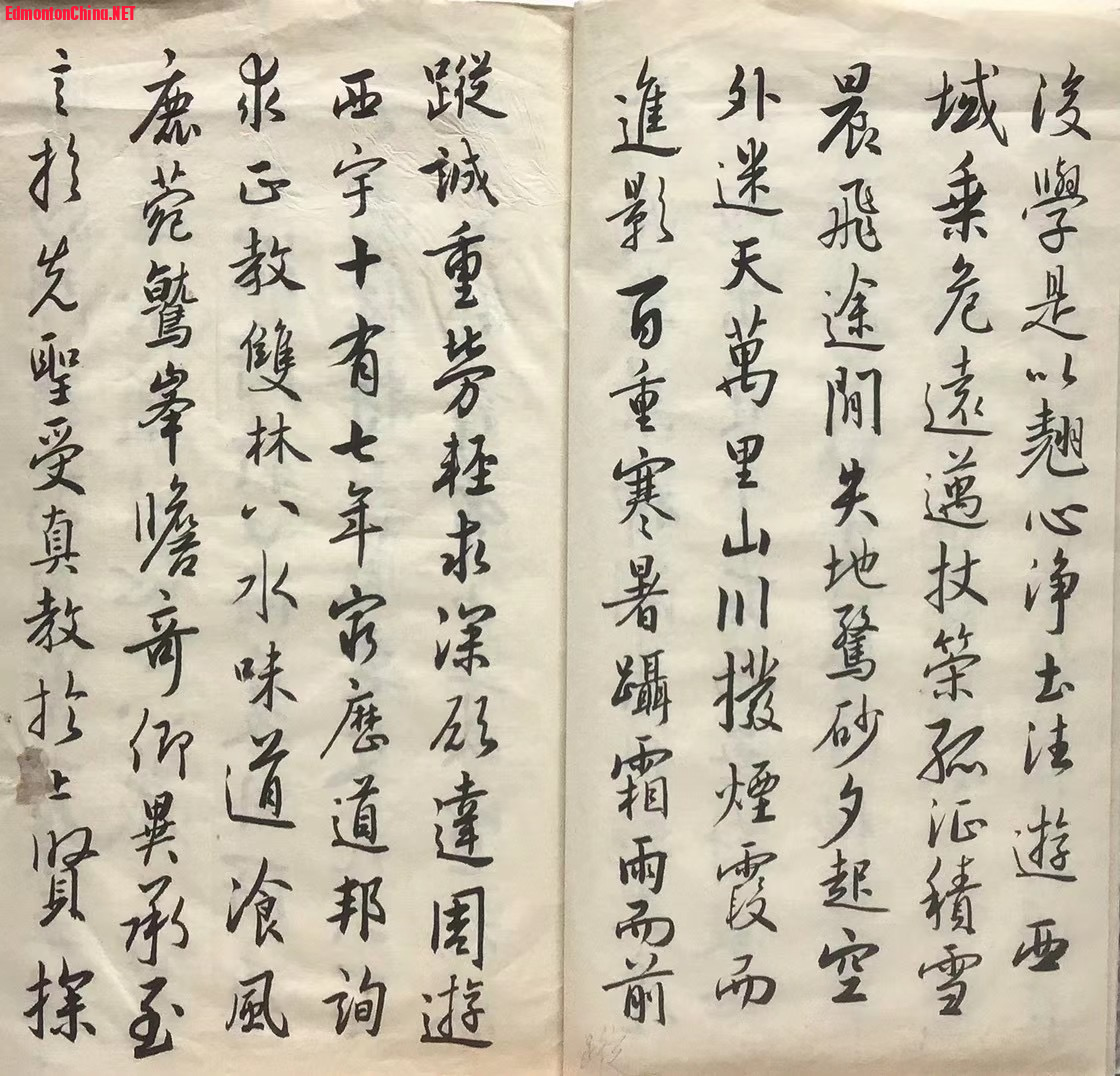 EdmontonChina.NET
後學是以翹心淨土往遊西
域乘危遠邁杖策孤征積雪
晨飛途閒失地驚砂夕起空
外迷天萬里山川撥煙霞而
進影百重寒暑躡霜雨而前
蹤誠重勞輕求深願達周遊
西宇十有七年窮歷道邦詢
求正教雙林八水味道飡風
鹿菀鷲峯瞻奇仰異承至
言於先聖受真教於上賢探